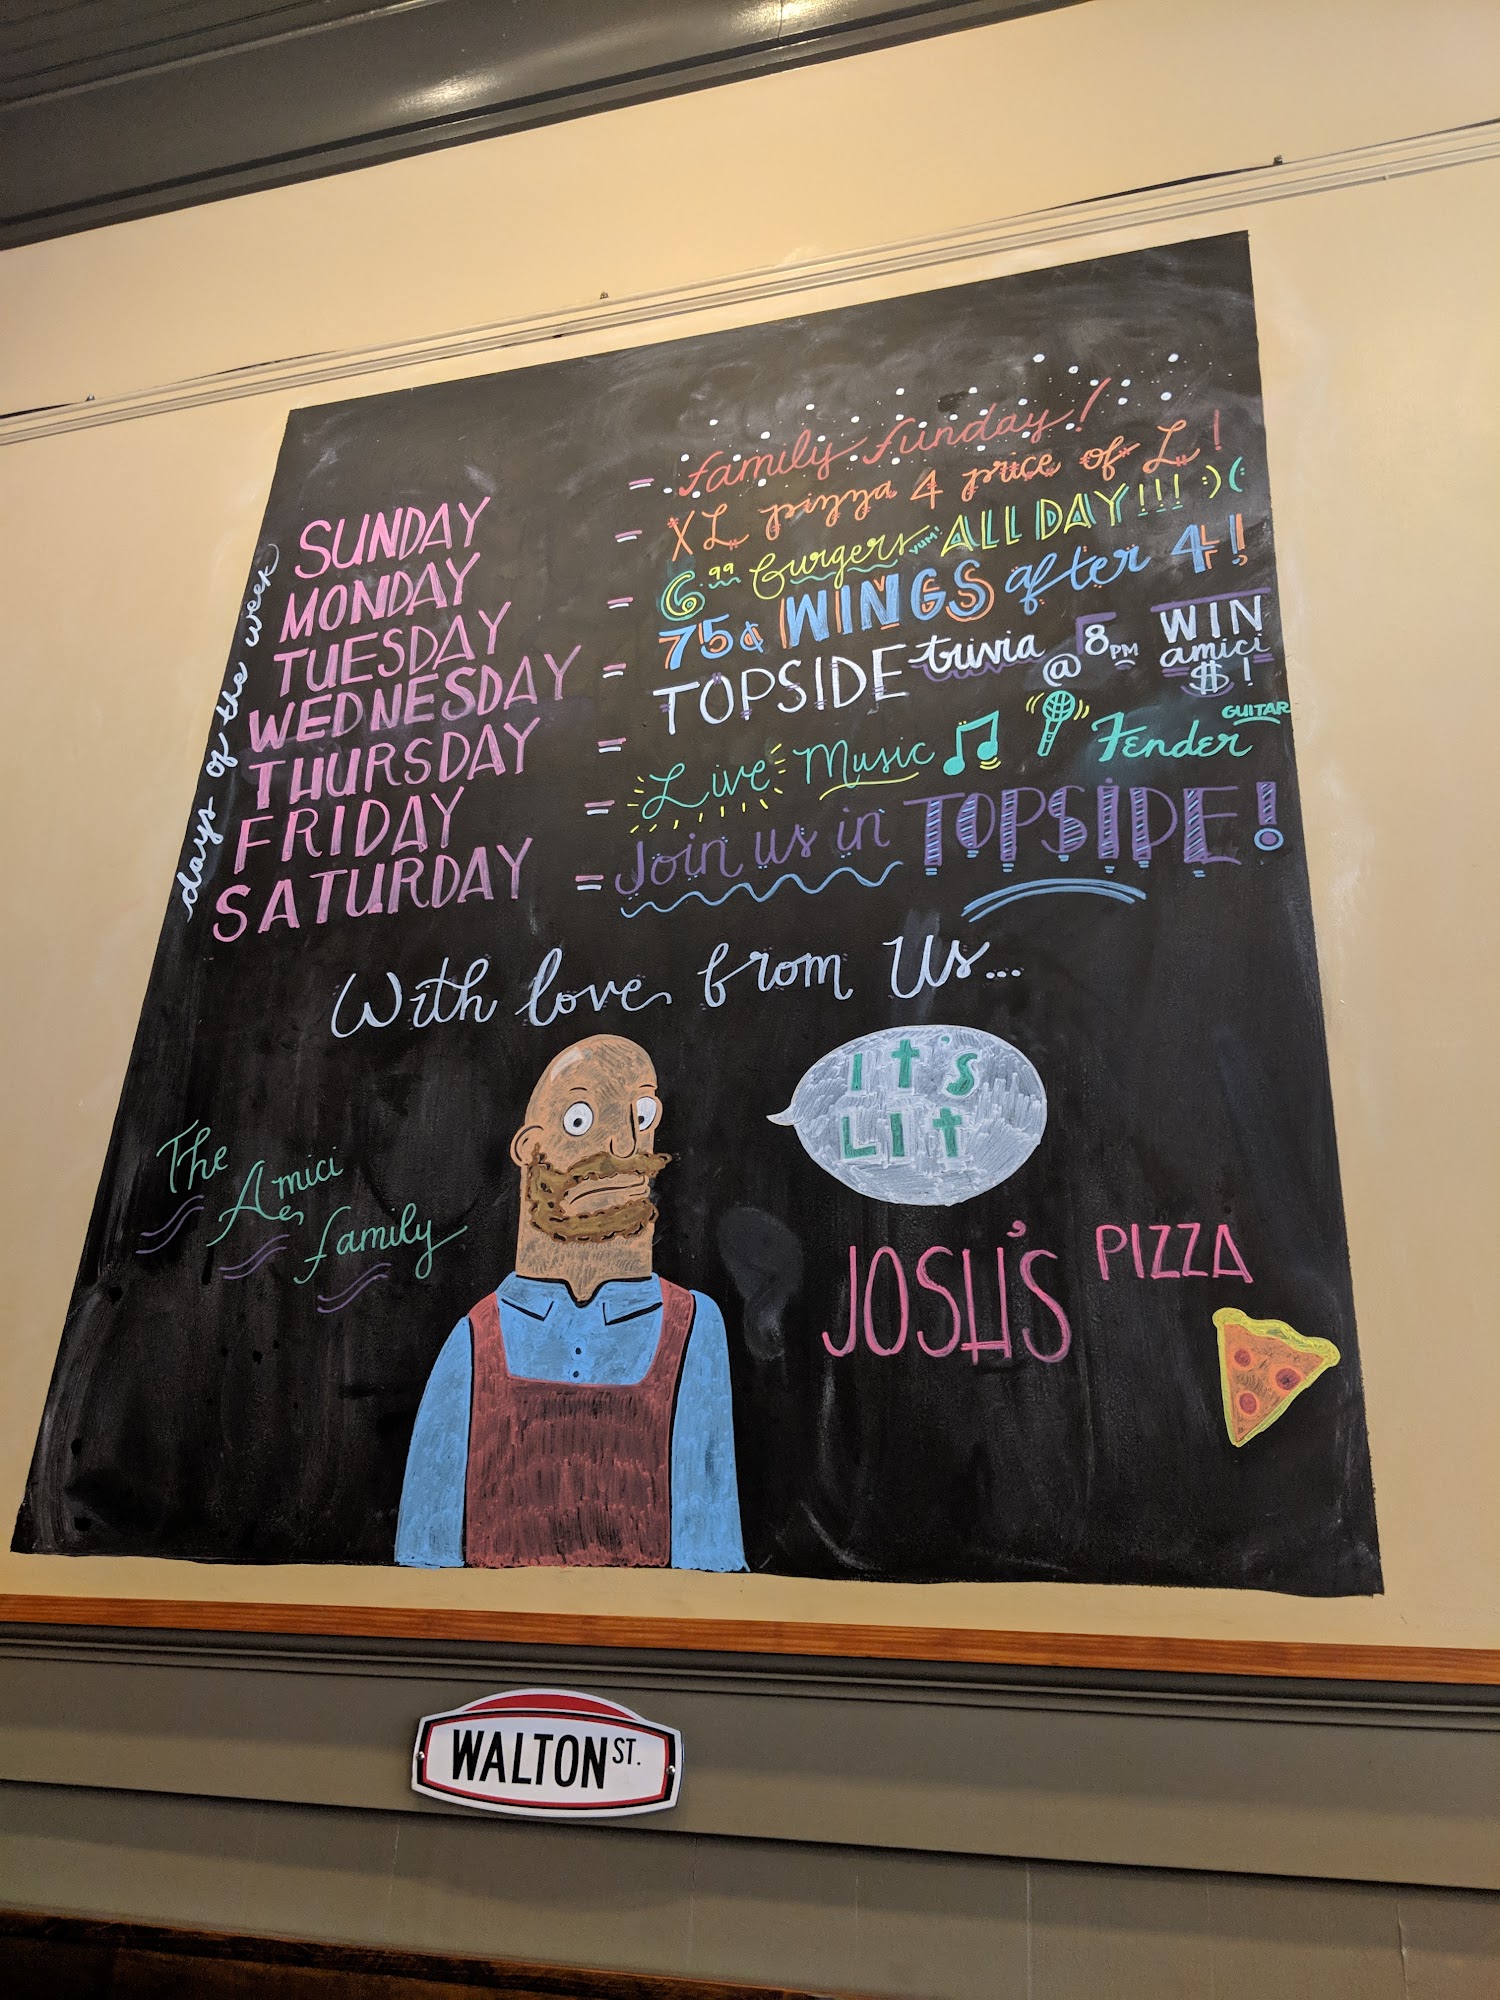 days of the week
SUNDAY = Family Funday!
MONDAY = XL pizza 4 price of L!
TUESDAY = 6.99 burgers YUM! ALL DAY!!! :)(:
WEDNESDAY = 75¢ WINGS after 4!
THURSDAY = TOPSIDE trivia @ 8PM WIN amici $!
FRIDAY = Live Music Fender GUITAR
SATURDAY = Join us in TOPSIDE!
With love from Us...
It's
LIt
The
Amici
family
JOSH'S PIZZA
WALTON ST.